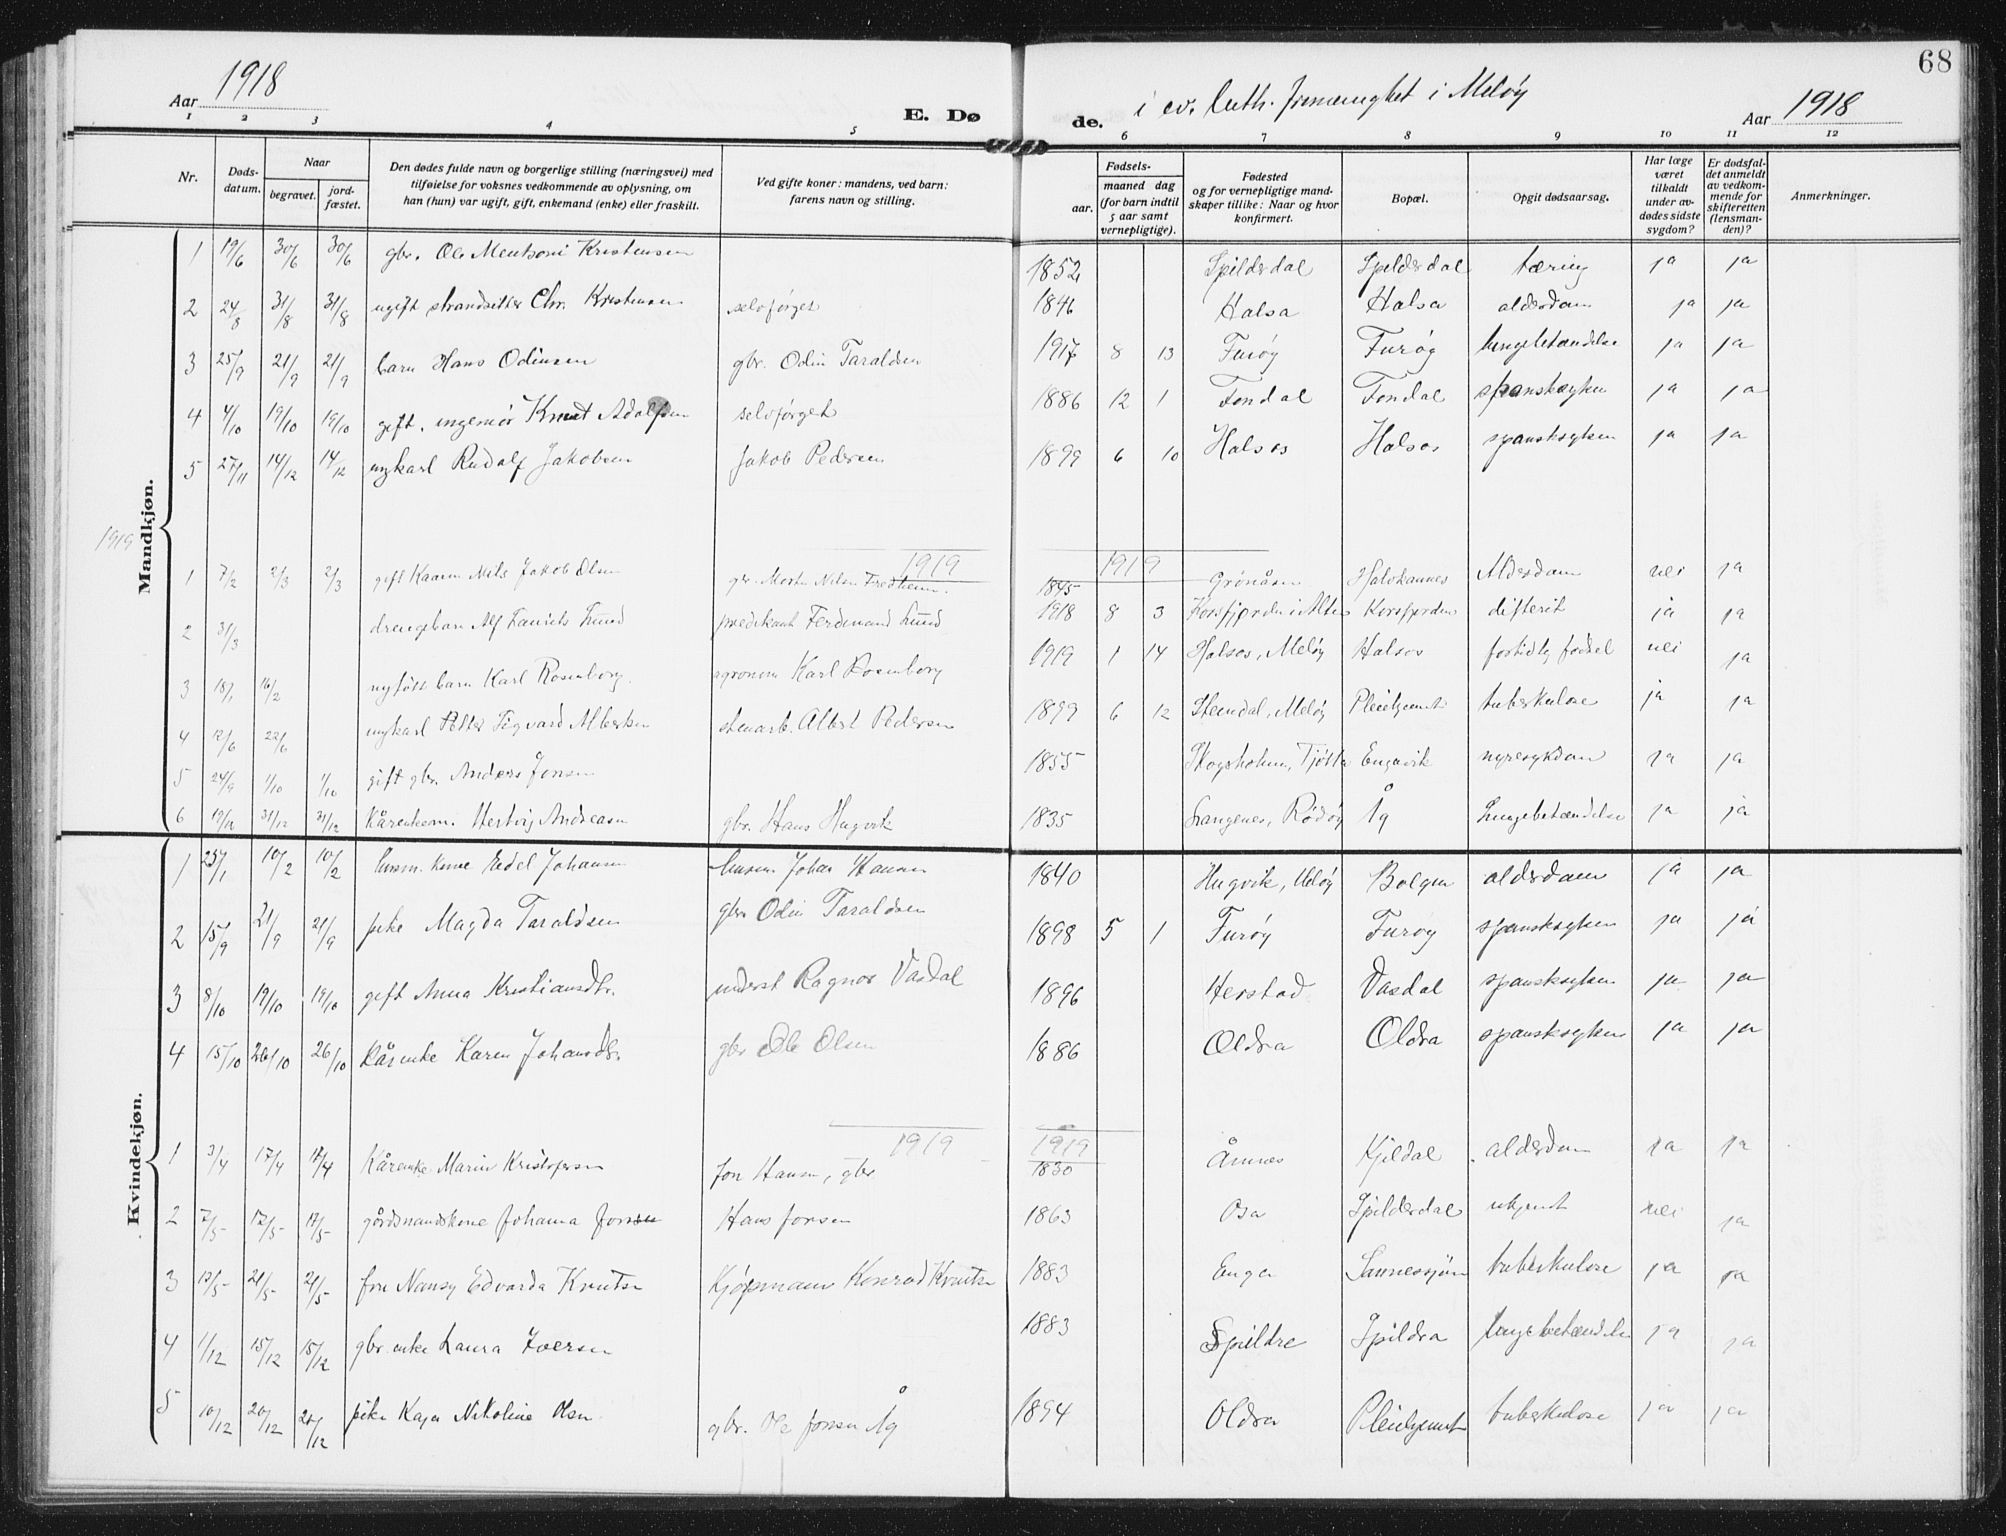 68
Aar 1918
E. Dø
de.
i ev. luth. frimenighet i Meløy
Aar 1918
1 2 3 4 5 6 7 8 9 10 11 12
Nr.
Døds-
datum.
Naar
begravet.
jord-
fæstet.
Den dødes fulde navn og borgerlige stilling (næringsvei) med
tilføielse for voksnes vedkommende av oplysning, om
han (hun) var ugift, gift, enkemand (enke) eller fraskilt.
Ved gifte koner: mandens, ved barn:
farens navn og stilling.
Fødsels-
aar.
maaned dag
(for barn indtil
5 aar samt
vernepligtige).
Fødested
og for vernepligtige mand-
skaper tillike: Naar og hvor
konfirmert.
Bopæl.
Opgit dødsaarsag.
Har læge
været
tilkaldt
under av-
dødes sidste
sygdom?
Er dødsfal-
det anmeldt
av vedkom-
mende for
skifteretten
(lensman-
den)?
Anmerkninger.
Mandkjøn.
1 19/6 30/6 30/6 gbr. Ole Mentsoni Kristensen 1852 Spilderdal Spilderdal tæring ja ja
2 24/8 31/8 31/8 ugift strandsitter Chr. Kristensen selvførget 1846 Halsa Halsa alderdom ja ja
3 25/9 21/9 21/9 barn Hans Odinsen gbr. Odin Taraldsen 1917 8 13 Furøy Furøy lungebetændelse ja ja
4 4/10 19/10 19/10 gift. ingeniør Knut Adolfsen selvførget 1886 12 1 Fondal Fondal spansksyken ja ja
5 27/11 14/12 14/12 ungkarl Rudolf Jakobsen Jakob Pedersen 1899 6 10 Halsos Halsos spansksyken ja ja
1919
1919 1919
1 7/2 2/3 2/3 gift Kaarm. Nils Jakob Olsen gbr. Morten Nilsen Fredheim. 1845 Grønåsen Halskannes Alderdom nei ja
2 31/3 drengebarn Alf Lauritz Lund predikant Ferdinand Lund 1918 8 3 Korsfjorden i Alten Korsfjorden difterit ja ja
3 18/1 16/2 nyfött barn Karl Rosenborg. agronom Karl Rosenborg 1919 1 14 Halsos, Meløy Halsos fortidlig fødsel nei ja
4 12/6 22/6 ungkarl Petter Sigvard Albertsen stenarb. Albert Pedersen 1899 6 12 Stendal, Meløy Pleiehjemmet tuberkulose ja ja
5 24/9 1/10 1/10 gift gbr. Anders Jonsen 1855 Skogsholmen, Tjøtta Engavik nyresykdom ja ja
6 19/12 31/12 31/12 Kårenkem. Hertvig Andreassen gbr. Hans Hugvik 1835 Langenes, Rødøy Åg Lungebetændelse ja ja
Kvindekjøn.
1 25/1 10/2 10/2 husm. kone Edel Johansen husm. Johan Hansen 1840 Hugvik, Meløy Bolgen alderdom ja ja
2 15/9 21/9 21/9 pike Magda Taraldsen gbr. Odin Taraldsen 1898 5 1 Furøy Furøy spansksyken ja ja
3 8/10 19/10 19/10 gift Anna Kristiansdtr. underst Ragnor Vasdal 1896 Herstad Vasdal spansksyken ja ja
4 15/10 26/10 26/10 Kårenke Karen Johansdtr. gbr Ole Olsen 1886 Oldra Oldra spansksyken ja ja
1919 1919
1 3/4 17/4 17/4 Kårenke Marie Kristofersen Jon Hansen, gbr. 1830 Åmnes Kjeldal alderdom ja ja
2 7/5 17/5 17/5 gårdsmandskone Johanna Jonsen Hans Jonsen 1863 Osa Spilderdal ukjent nei ja
3 13/5 21/5 21/5 fru Nansy Edvarda Knutsen Kjøpmann Konrad Knutsen 1883 Enga Sannessjøen tuberkulose ja ja
4 1/12 15/12 15/12 gbr. enke Laura Iversen 1883 Spildre Spildra lungebetændelse ja ja
5 10/12 20/12 20/12 pike Kaja Nikoline Olsen gbr. Ole Jonsen Åg 1894 Oldra Pleiehjemmet tuberkulose ja ja